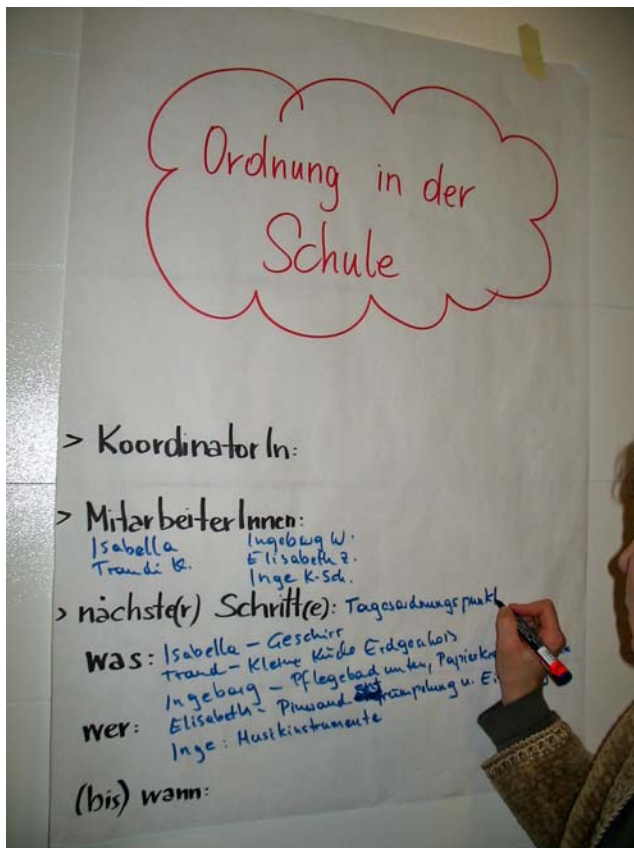 Ordnung in der
Schule
> KoordinatorIn:
> MitarbeiterInnen:
Isabella Ingeborg W.
Traudi K. Elisabeth Z.
Inge K-Sch.
> nächste(r) Schritt(e): Tagesordnungspunkt
was: Isabella – Geschirr
Traud – Kleine Küche Erdgeschoß
Ingeborg – Pflegebad unten,
wer: Elisabeth – Pinwand u.
Inge: Musikinstrumente
(bis) wann: